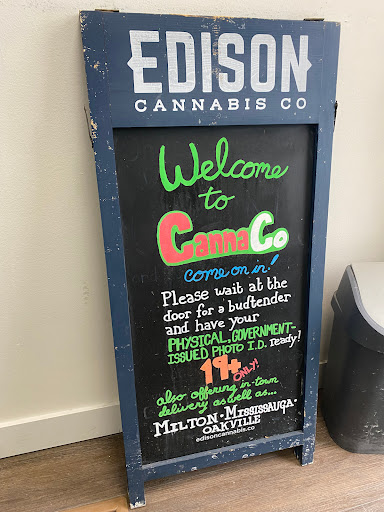 EDISON
CANNABIS CO
Welcome
to
CannaCo
come on in!
Please wait at the
door for a budtender
and have your
PHYSICAL, GOVERNMENT-
ISSUED PHOTO I.D. ready!
19+ ONLY!
also offering in-town
delivery as well as...
MILTON · MISSISSAUGA ·
OAKVILLE
edisoncannabis.co